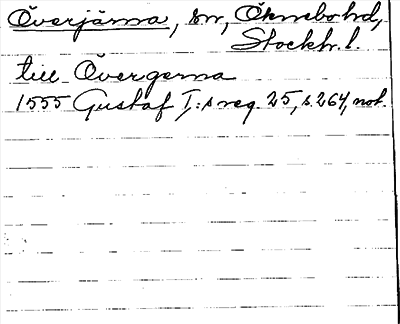 Överjärna, sn, Öknebo hd,
Stockh. l.
till Övergerna
1555 Gustaf I:s reg. 25, s. 264, not.